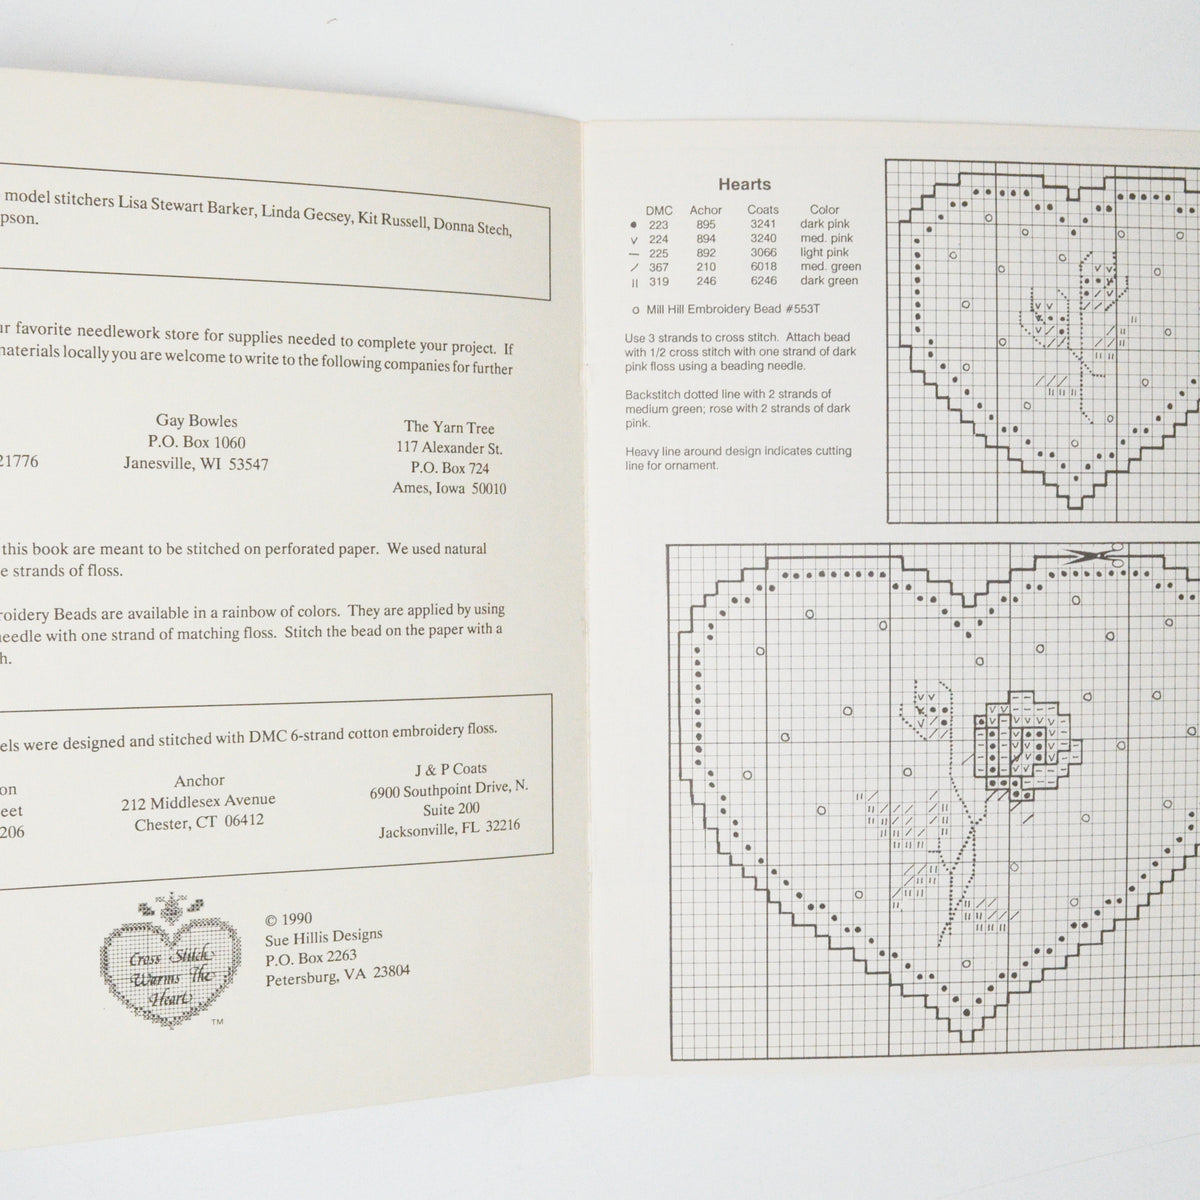 model stitchers Lisa Stewart Barker, Linda Gecsey, Kit Russell, Donna Stech,
pson.
ur favorite needlework store for supplies needed to complete your project. If
naterials locally you are welcome to write to the following companies for further
Gay Bowles
P.O. Box 1060
Janesville, WI 53547
21776
The Yarn Tree
117 Alexander St.
P.O. Box 724
Ames, Iowa 50010
this book are meant to be stitched on perforated paper. We used natural
e strands of floss.
roidery Beads are available in a rainbow of colors. They are applied by using
needle with one strand of matching floss. Stitch the bead on the paper with a
h.
els were designed and stitched with DMC 6-strand cotton embroidery floss.
on
eet
206
Anchor
212 Middlesex Avenue
Chester, CT 06412
J & P Coats
6900 Southpoint Drive, N.
Suite 200
Jacksonville, FL 32216
Cross Stitch
Warms The
Heart
TM
© 1990
Sue Hillis Designs
P.O. Box 2263
Petersburg, VA 23804
Hearts
DMC Achor Coats Color
● 223 895 3241 dark pink
v 224 894 3240 med. pink
— 225 892 3066 light pink
/ 367 210 6018 med. green
|| 319 246 6246 dark green
o Mill Hill Embroidery Bead #553T
Use 3 strands to cross stitch. Attach bead
with 1/2 cross stitch with one strand of dark
pink floss using a beading needle.
Backstitch dotted line with 2 strands of
medium green; rose with 2 strands of dark
pink.
Heavy line around design indicates cutting
line for ornament.